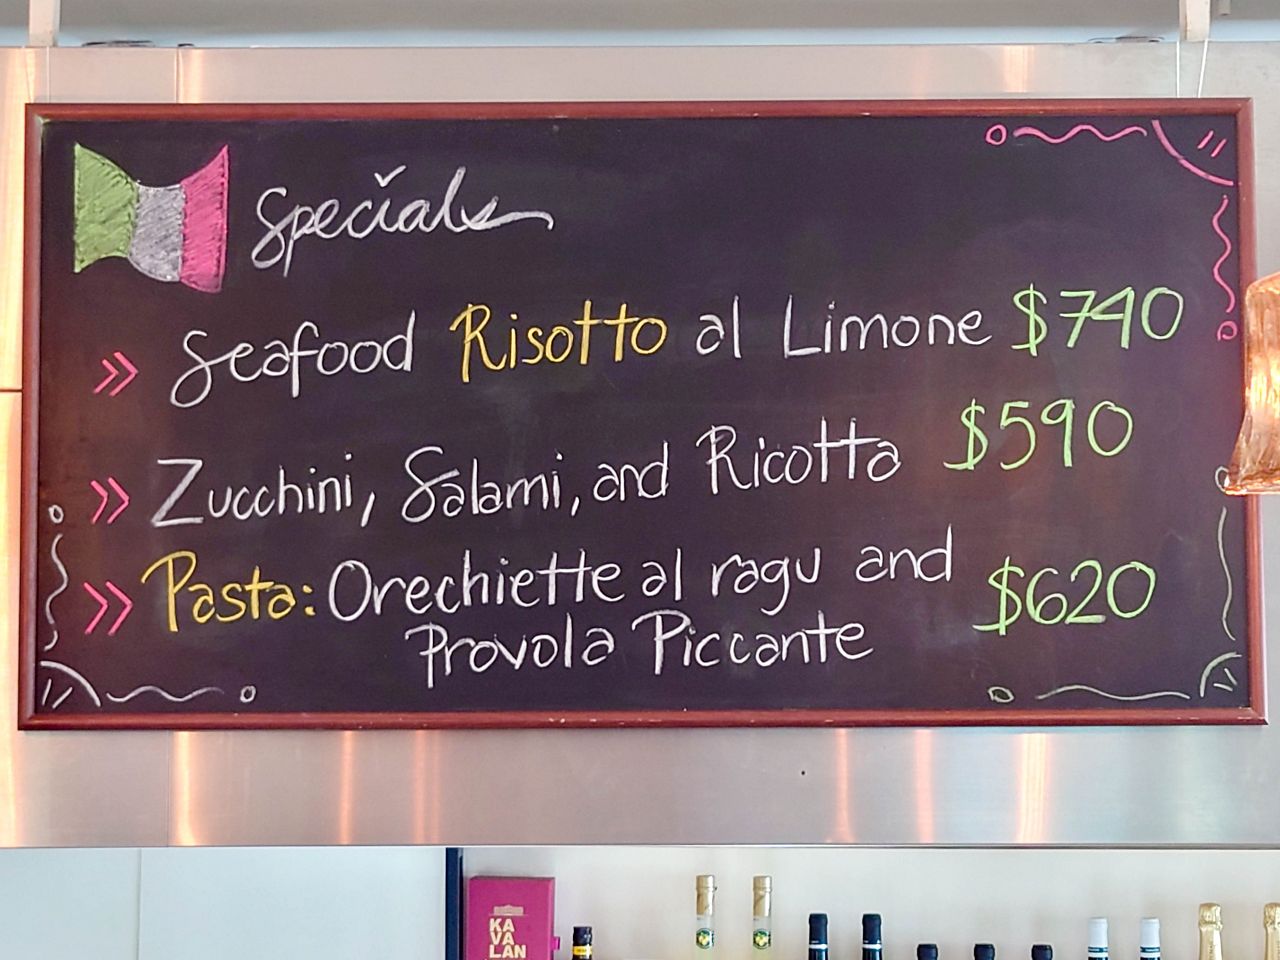 Specials
>> Seafood Risotto al Limone $740
>> Zucchini, Salami, and Ricotta $590
>> Pasta: Orechiette al ragu and $620
Provola Piccante
KA
VA
LAN